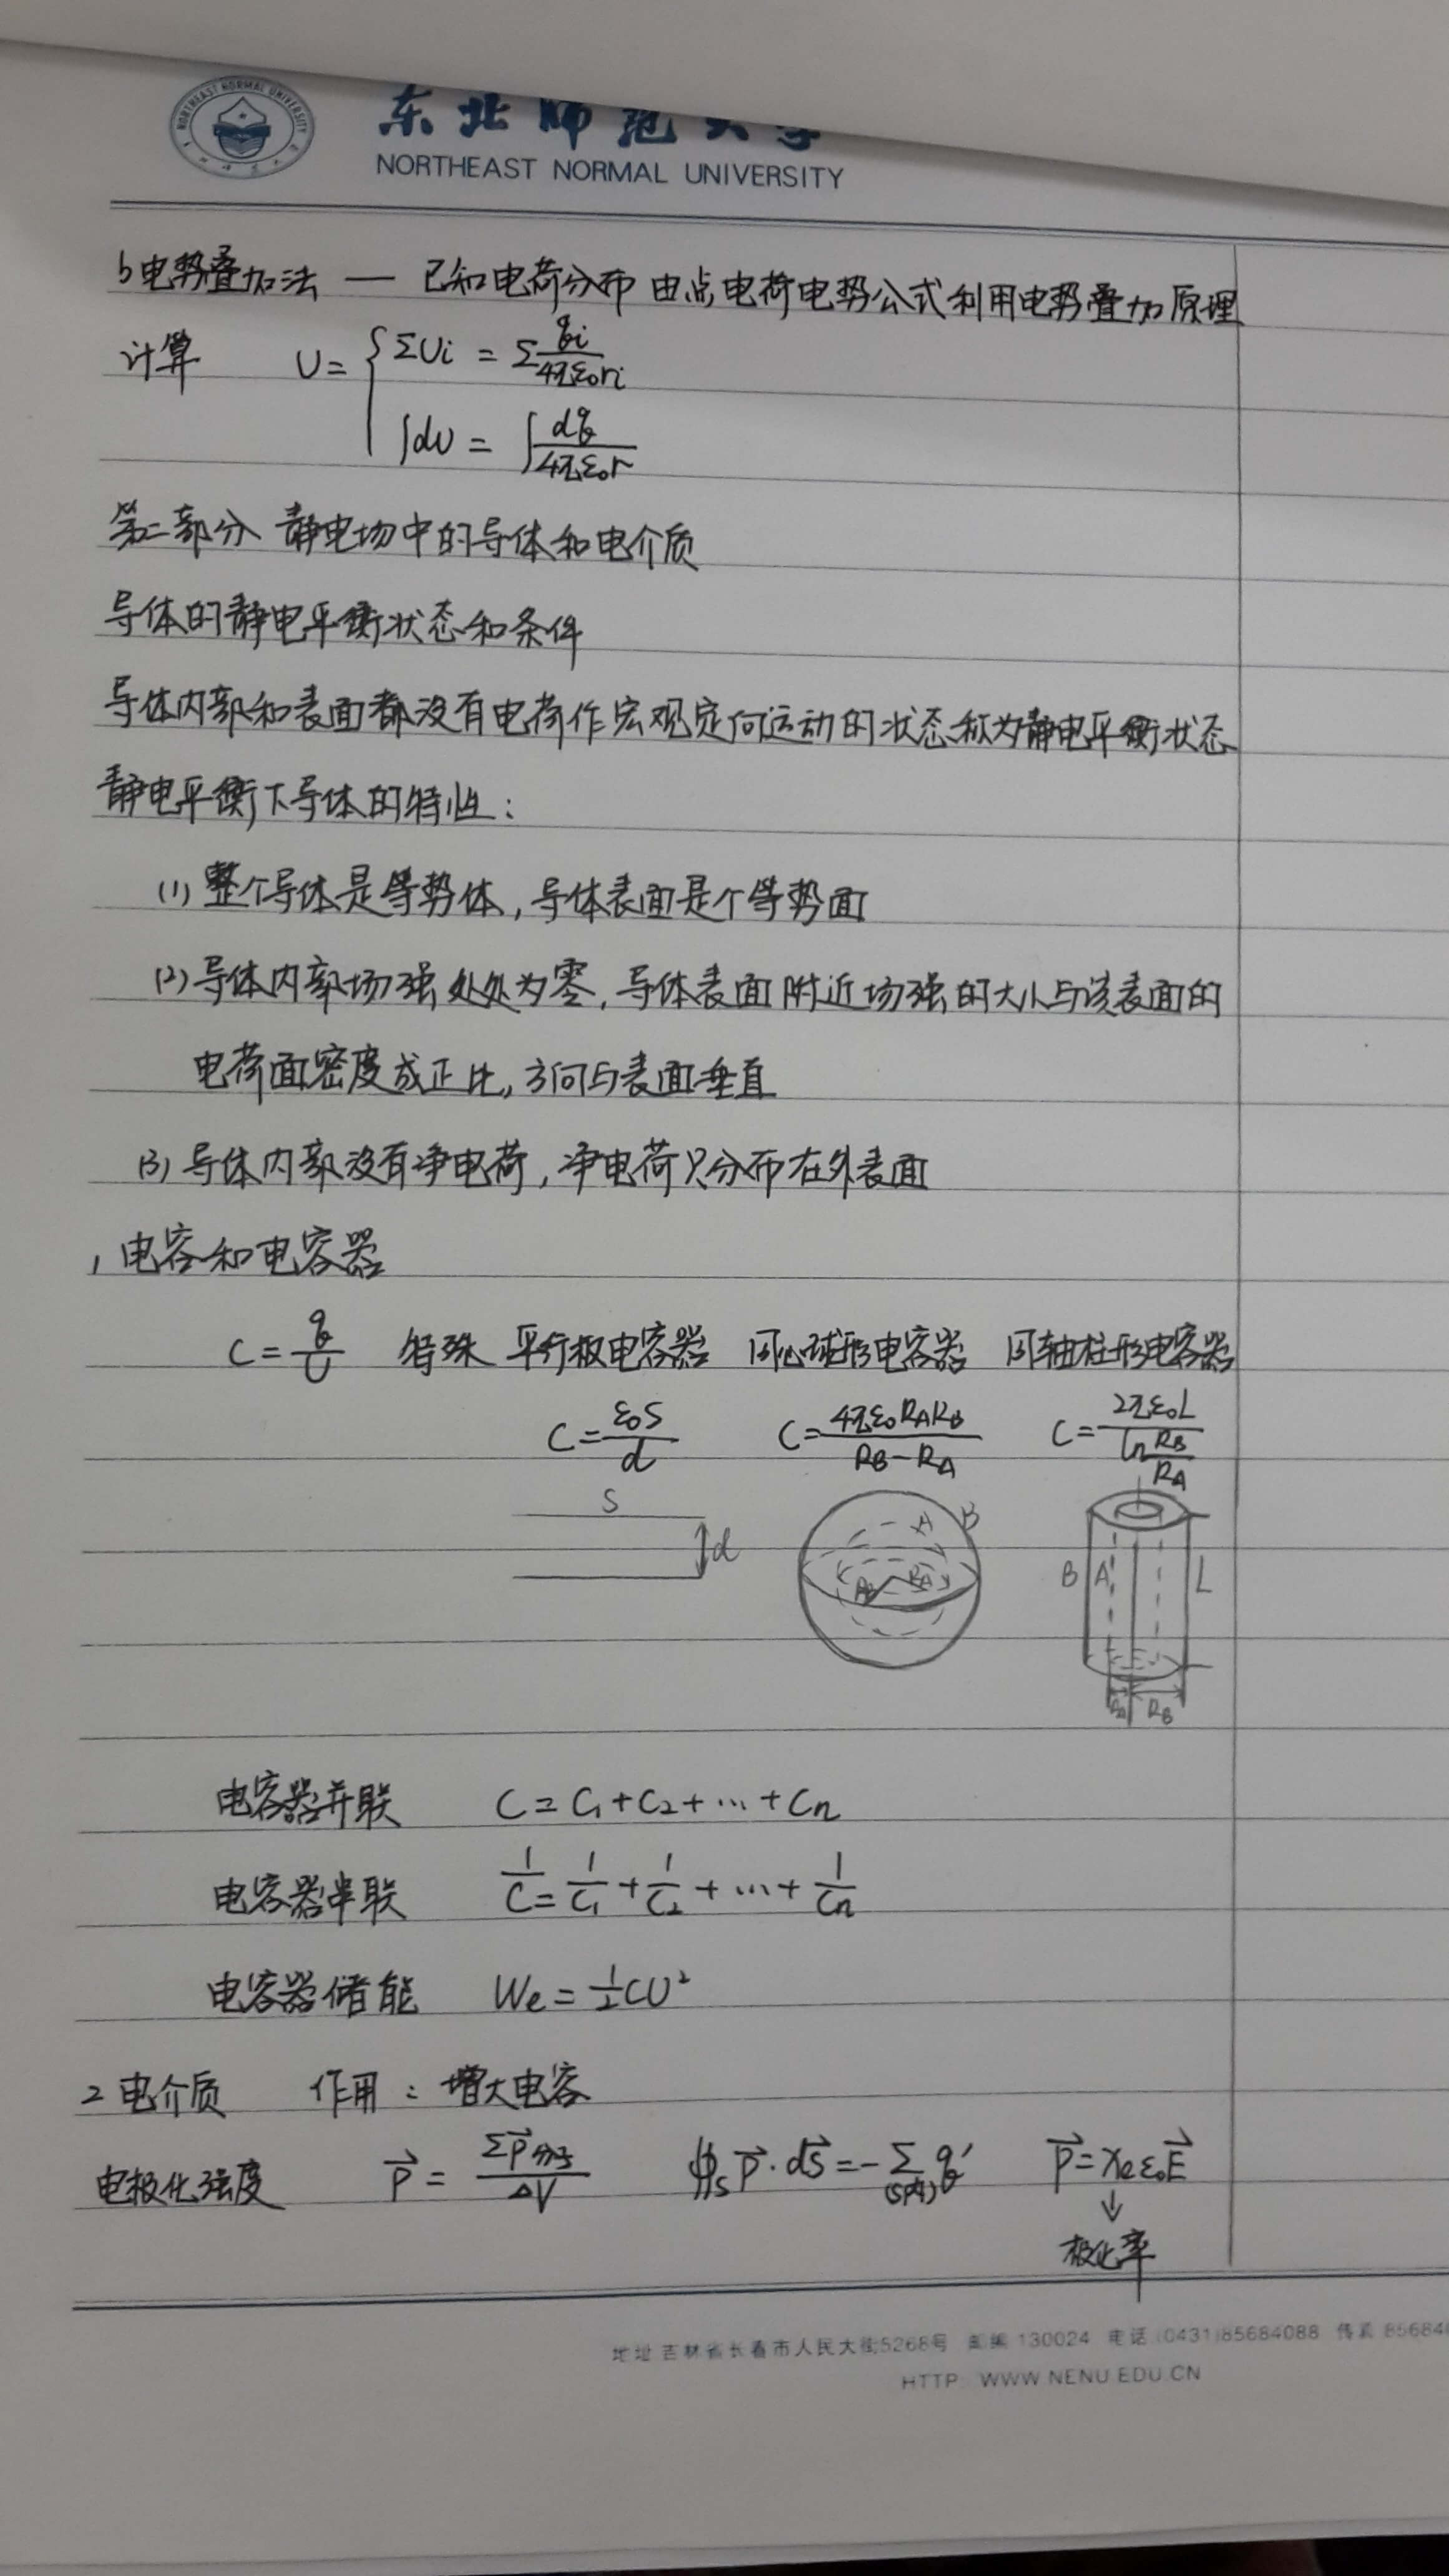 NORTHEAST NORMAL UNIVERSITY
东北师范大学
NORTHEAST NORMAL UNIVERSITY
b 电势叠加法 — 已知电荷分布 由点电荷电势公式利用电势叠加原理
计算 U = { ΣUi = Σ qi/4πε₀ri
∫dU = ∫ dq/4πε₀r
第二部分 静电场中的导体和电介质
导体的静电平衡状态和条件
导体内部和表面都没有电荷作宏观定向运动的状态称为静电平衡状态
静电平衡下导体的特性：
(1) 整个导体是等势体，导体表面是个等势面
(2) 导体内部场强处处为零，导体表面附近场强的大小与该表面的
电荷面密度成正比，方向与表面垂直
(3) 导体内部没有净电荷，净电荷只分布在外表面
1 电容和电容器
C = q/U 特殊 平行板电容器 同心球形电容器 同轴柱形电容器
C = ε₀S/d C = 4πε₀RARB/(RB−RA) C = 2πε₀L/ln(RB/RA)
S d
A B RB RA
B A L RA RB
电容器并联 C = C₁+C₂+…+Cn
电容器串联 1/C = 1/C₁ + 1/C₂ + … + 1/Cn
电容器储能 We = ½CU²
2 电介质 作用：增大电容
电极化强度 P⃗ = ΣP⃗分子/ΔV ∯s P⃗·dS⃗ = −Σ(S内) q′ P⃗ = χeε₀E⃗
↓
极化率
地址 吉林省长春市人民大街5268号 邮编 130024 电话 (0431)85684088 传真
HTTP WWW.NENU.EDU.CN